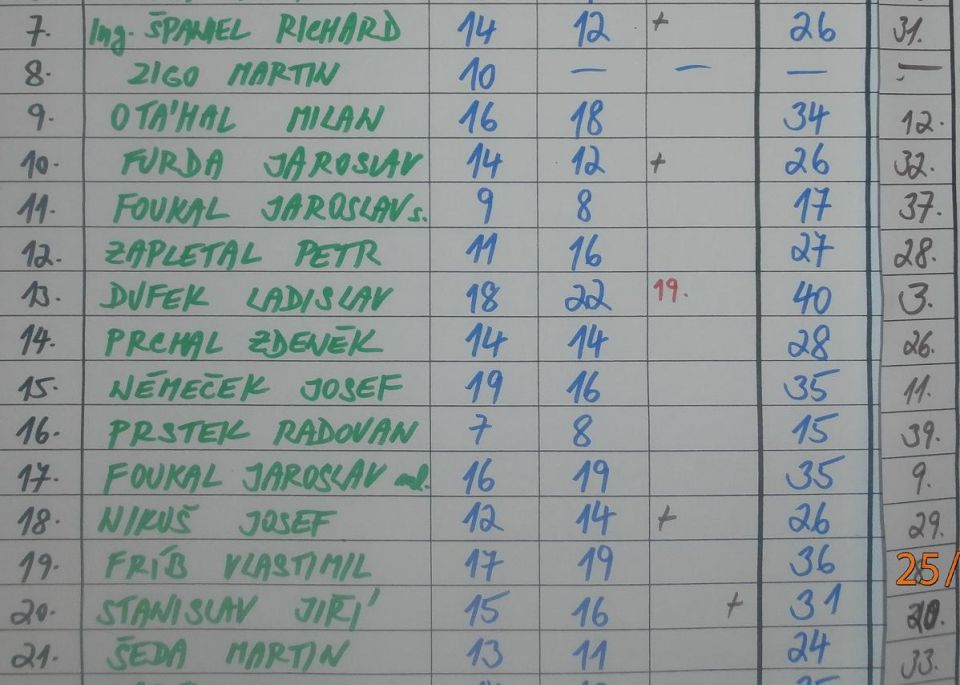 7. Ing. ŠPANIEL RICHARD 14 12 + 26 31.
8. ZIGO MARTIN 10 — — — —
9. OTÁHAL MILAN 16 18 34 12.
10. FURDA JAROSLAV 14 12 + 26 32.
11. FOUKAL JAROSLAV s. 9 8 17 37.
12. ZAPLETAL PETR 11 16 27 28.
13. DUFEK LADISLAV 18 22 19. 40 3.
14. PRCHAL ZDENĚK 14 14 28 26.
15. NĚMEČEK JOSEF 19 16 35 11.
16. PRSTEK RADOVAN 7 8 15 39.
17. FOUKAL JAROSLAV ml. 16 19 35 9.
18. NIKUŠ JOSEF 12 14 + 26 29.
19. FRÍB VLASTIMIL 17 19 36 25/
20. STANISLAV JIŘÍ 15 16 + 31 20.
21. ŠEDA MARTIN 13 11 24 33.